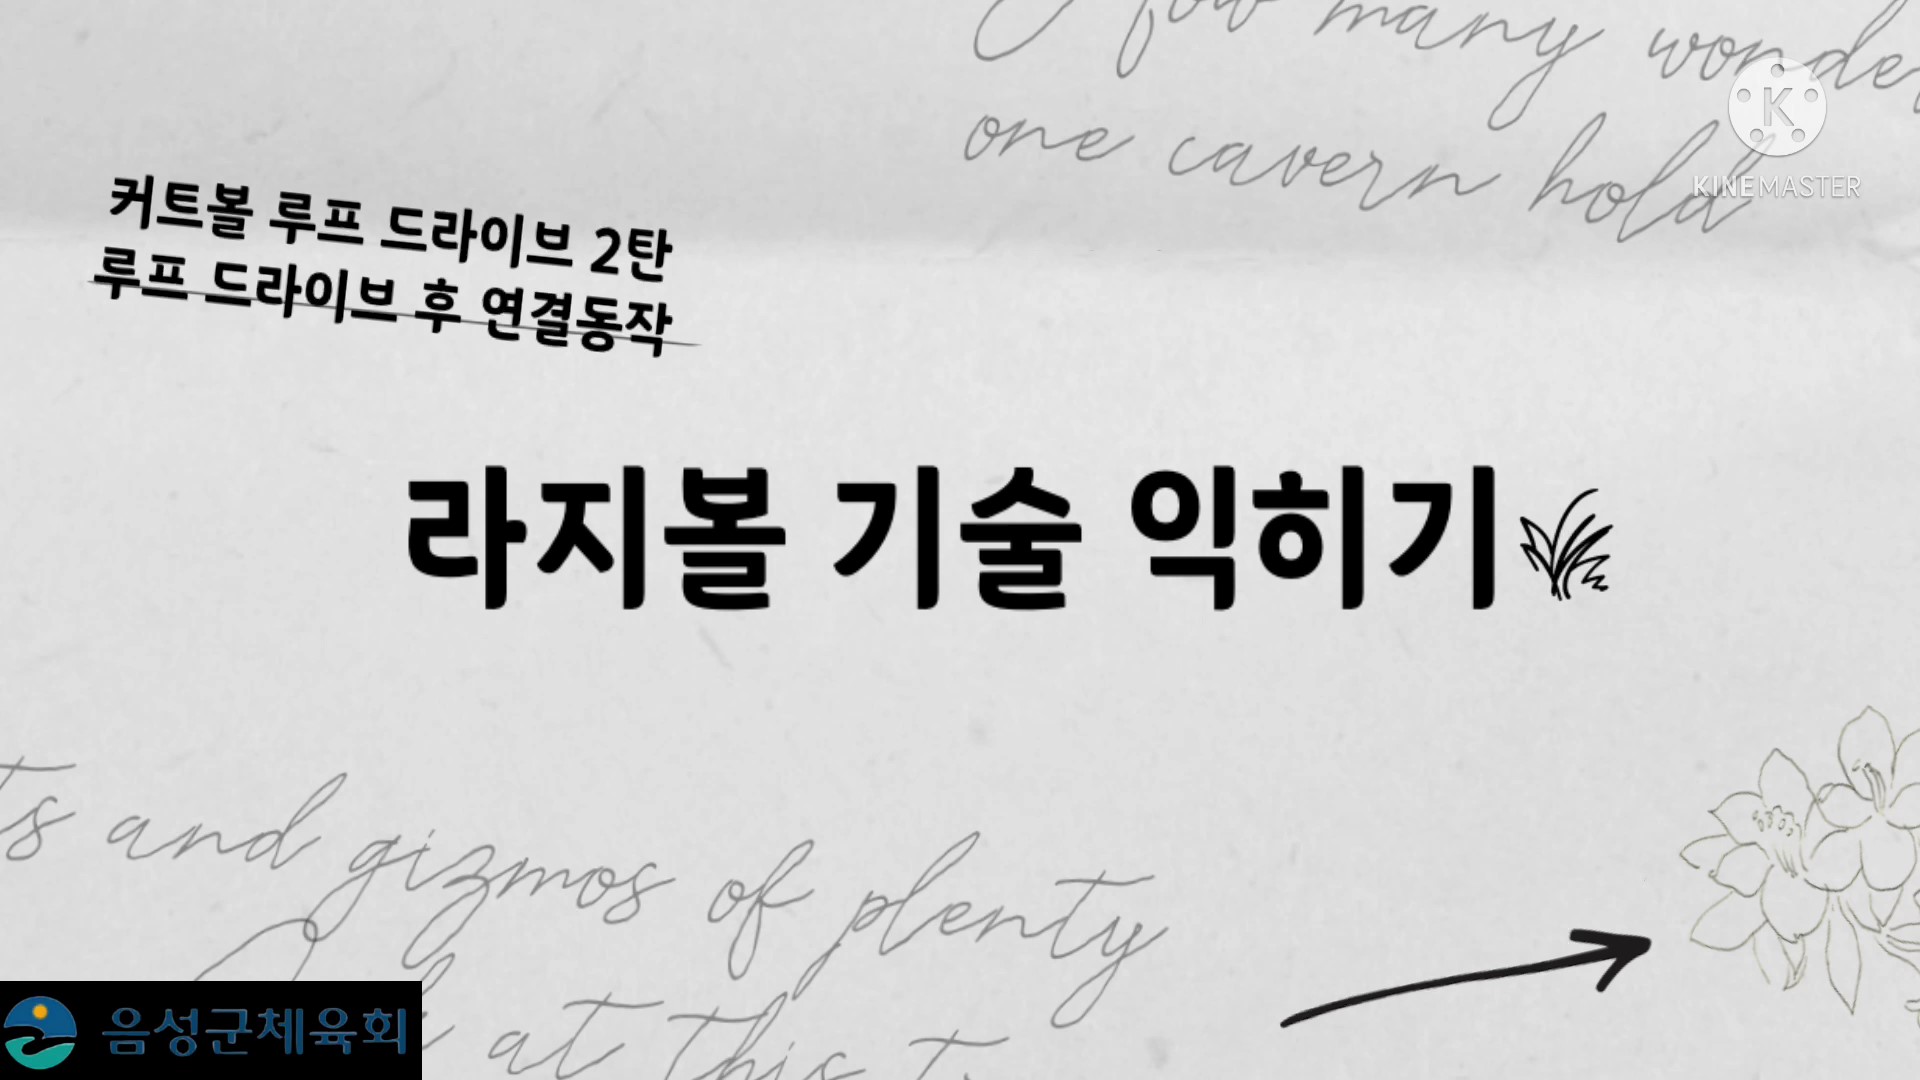 few many wonde
one cavern hold
KINEMASTER
커트볼 루프 드라이브 2탄
루프 드라이브 후 연결동작
라지볼 기술 익히기
ts and gizmos of plenty
at this t
음성군체육회